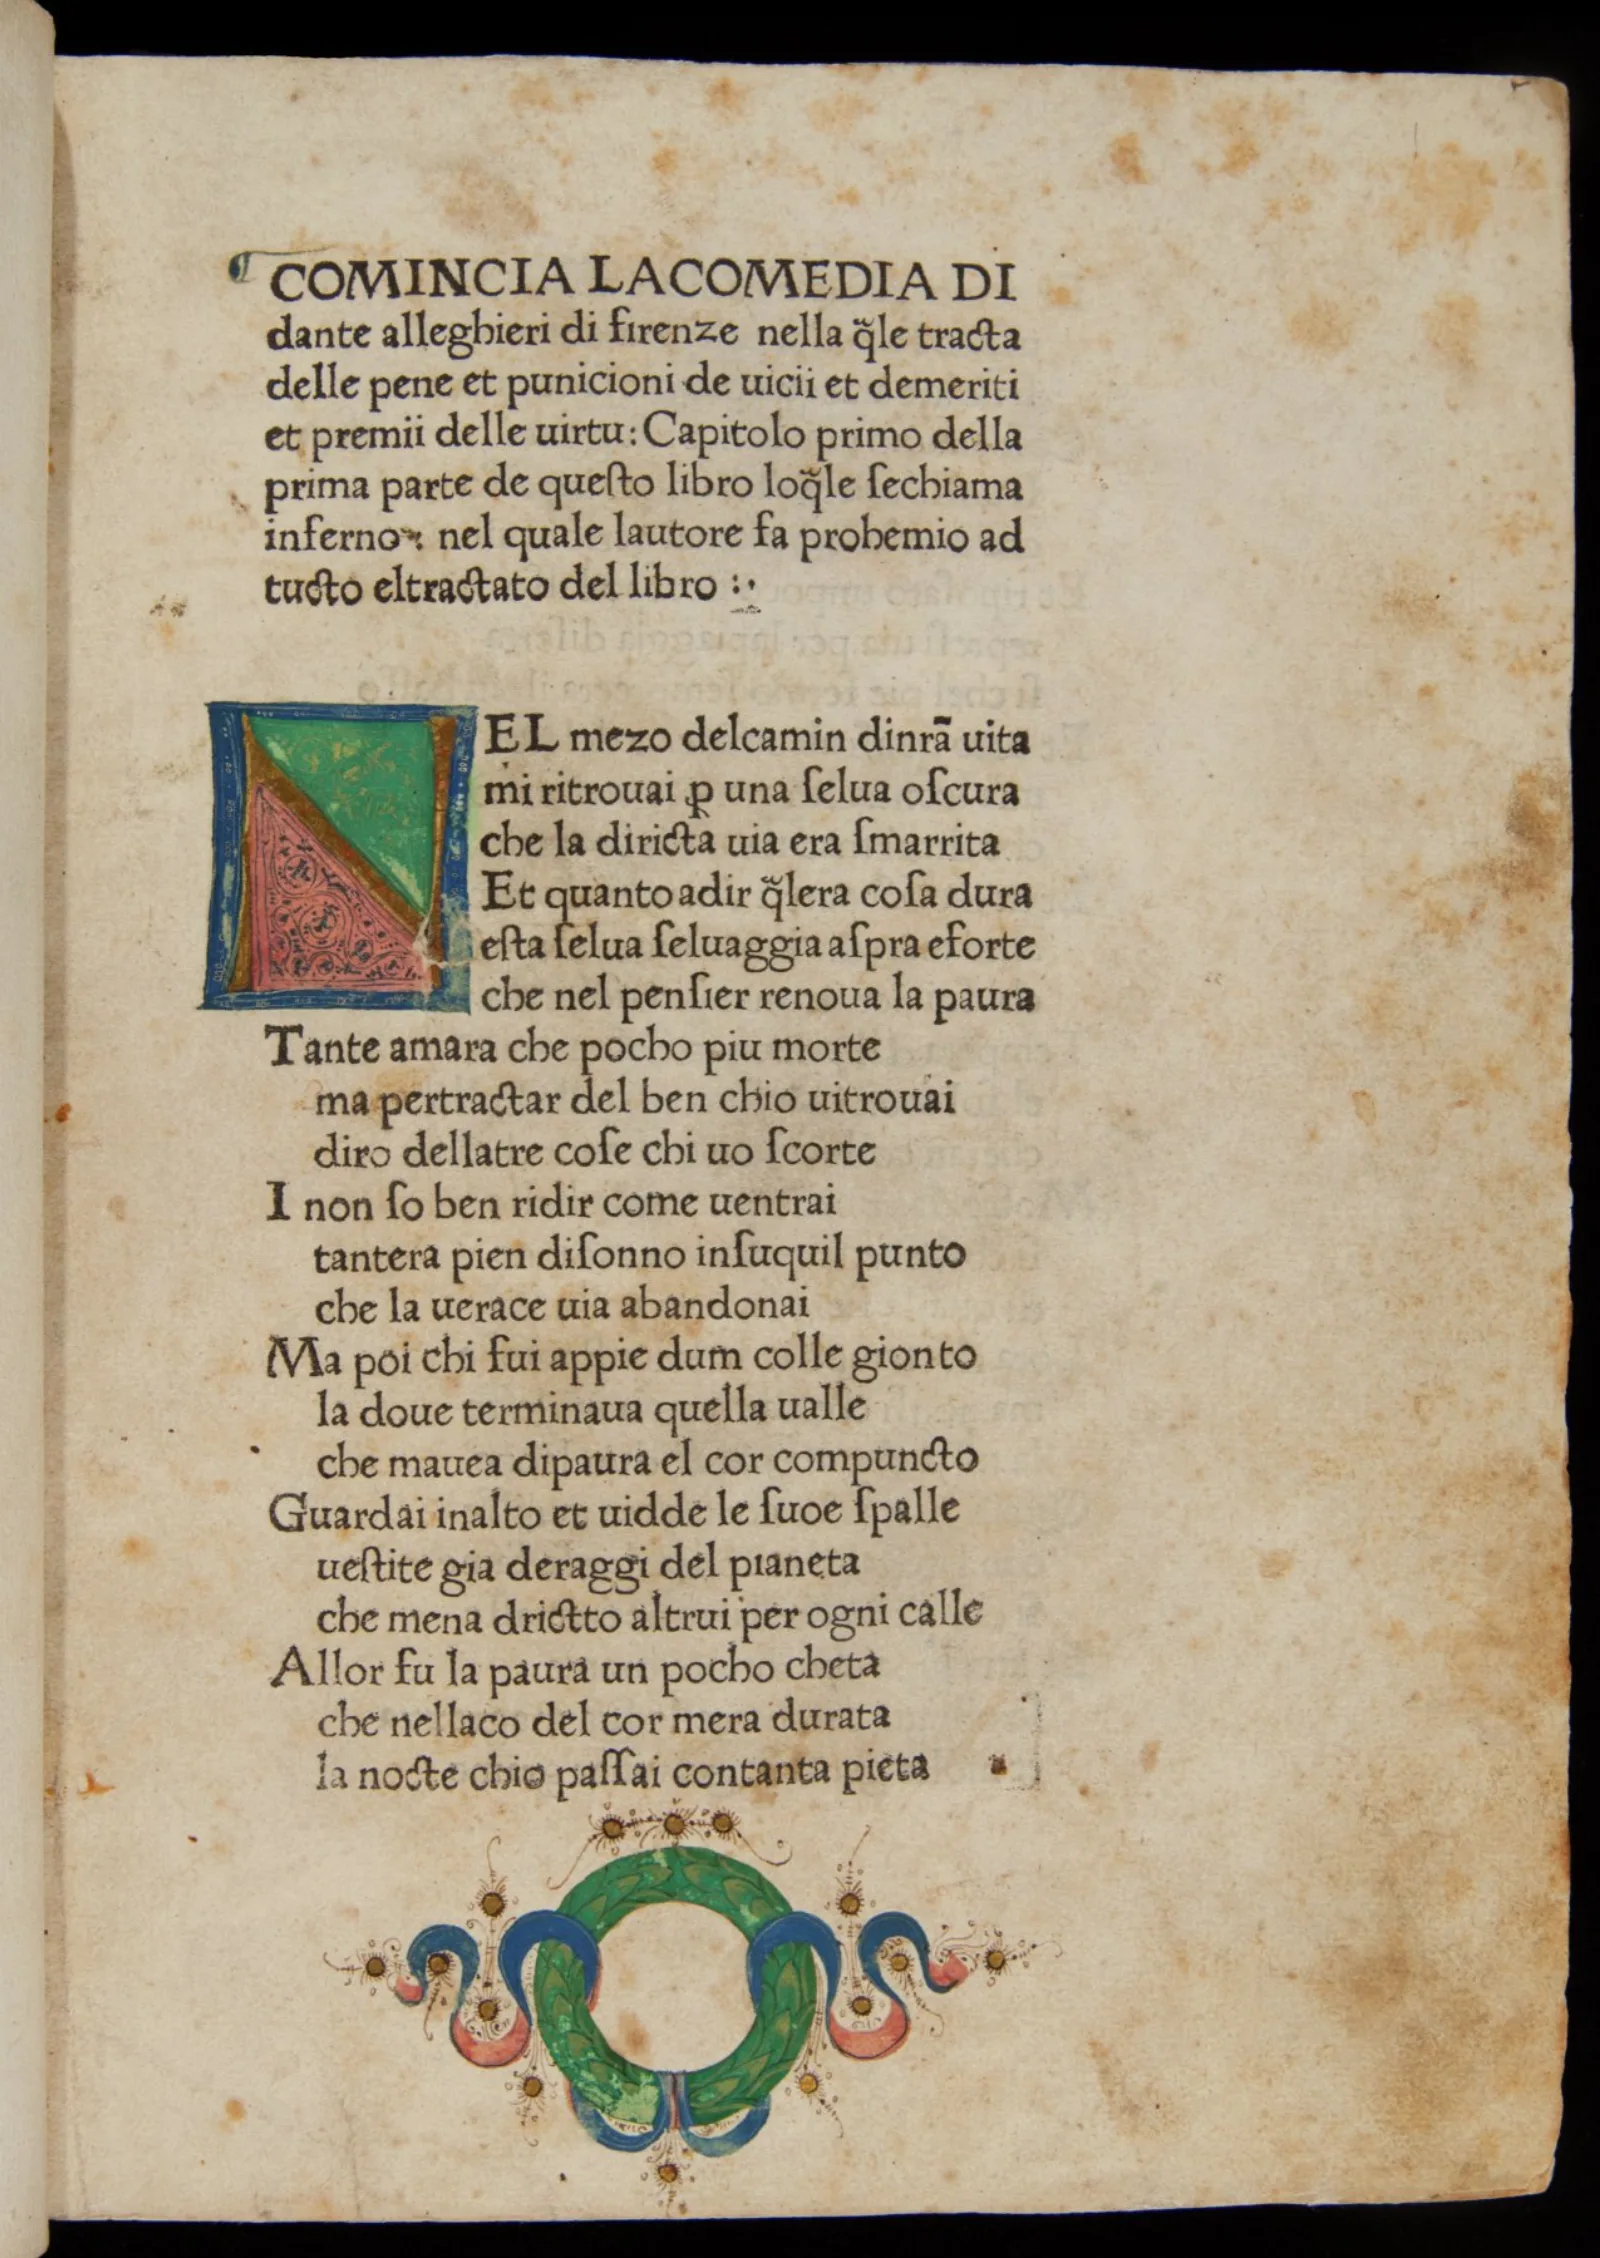 COMINCIA LACOMEDIA DI
dante alleghieri di firenze nella q̃le tracta
delle pene et punicioni de uicii et demeriti
et premii delle uirtu: Capitolo primo della
prima parte de queſto libro loq̃le ſechiama
inferno: nel quale lautore fa prohemio ad
tucto eltractato del libro :·
NEL mezo delcamin dinrã uita
mi ritrouai ꝑ una ſelua oſcura
che la diricta uia era ſmarrita
Et quanto adir q̃lera coſa dura
eſta ſelua ſeluaggia aſpra eforte
che nel penſier renoua la paura
Tante amara che pocho piu morte
ma pertractar del ben chio uitrouai
diro dellatre coſe chi uo ſcorte
I non ſo ben ridir come uentrai
tantera pien diſonno inſuquil punto
che la uerace uia abandonai
Ma poi chi fui appie dum colle gionto
la doue terminaua quella ualle
che mauea dipaura el cor compuncto
Guardai inalto et uidde le ſuoe ſpalle
ueſtite gia deraggi del pianeta
che mena drictto altrui per ogni calle
Allor fu la paura un pocho cheta
che nellaco del cor mera durata
la nocte chio paſſai contanta pieta